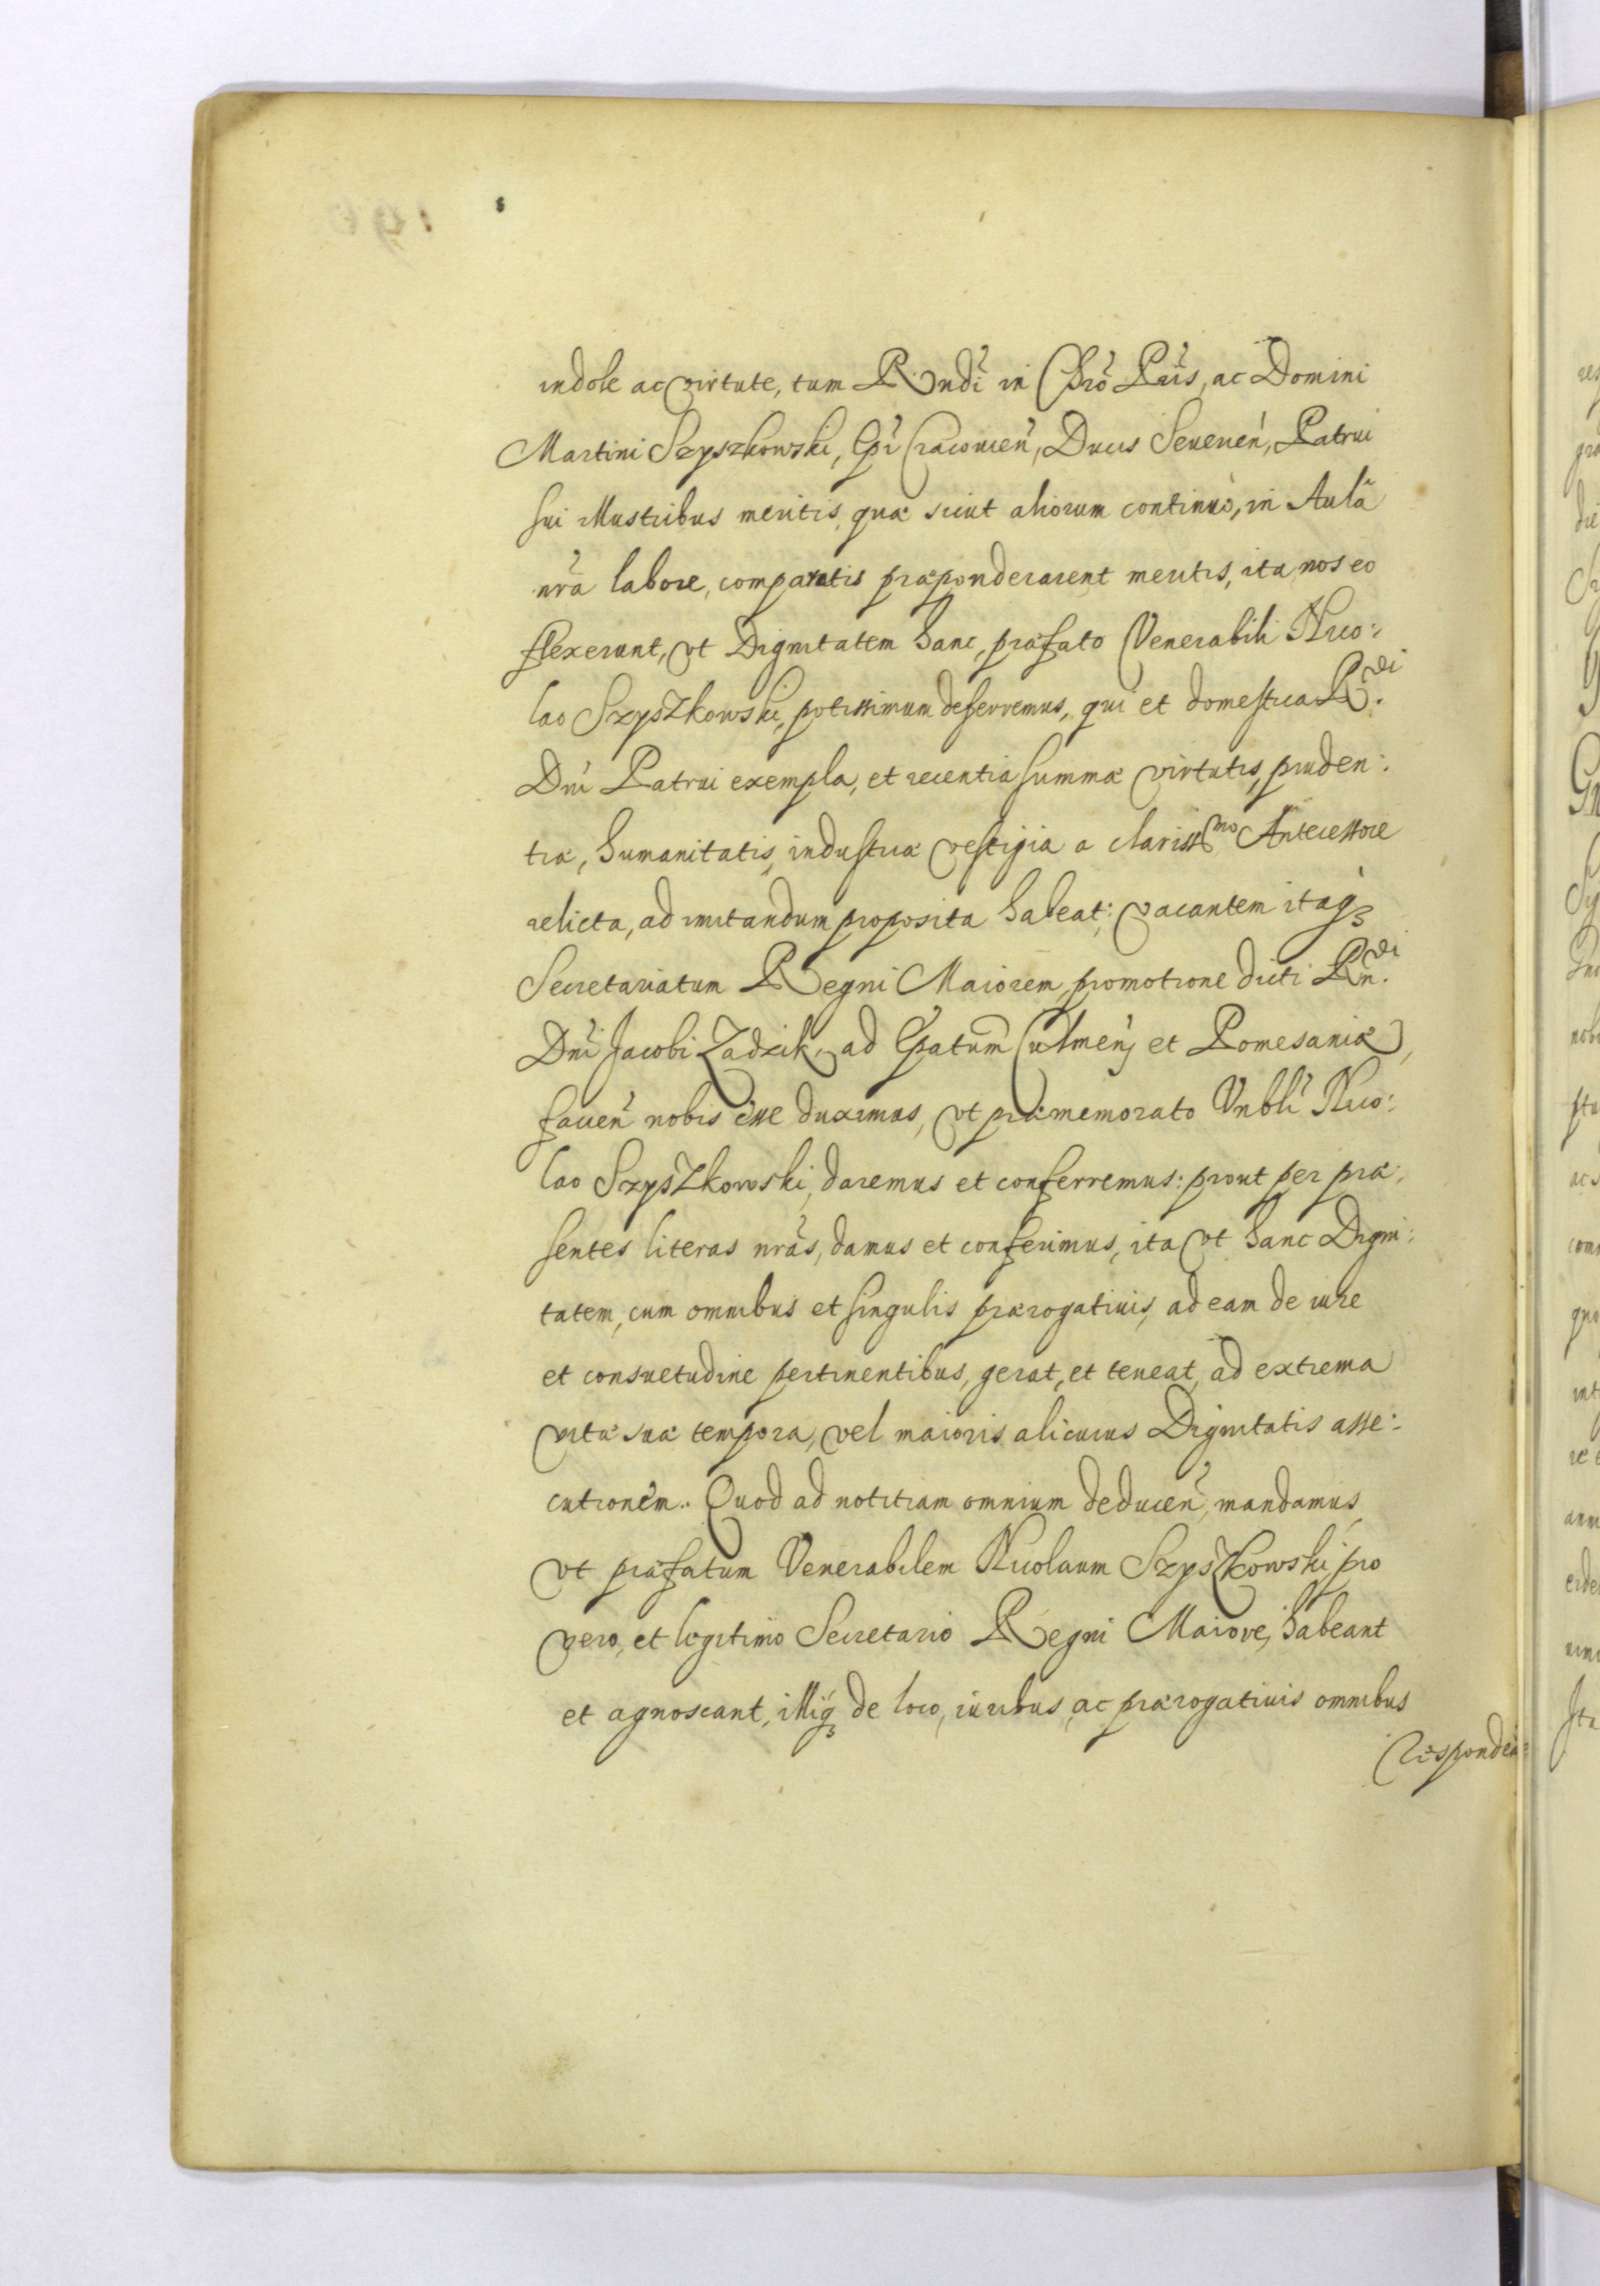 indole ac virtute, tum Rndi in Chro Pris, ac Domini
Martini Szyszkowski, Epi Cracouien, Ducis Seuerien, Patrui
sui illustribus meritis, quæ sicut aliorum continuò, in Aulâ
nrâ labore, comparatis præponderarent meritis, ita nos eo
flexerunt, vt Dignitatem hanc, præfato Venerabili Nico:
lao Szyszkowski, potissimum deferremus, qui et domestica R.di
Dni Patrui exempla, et recentia summæ virtutis, pruden:
tiæ, humanitatis, industriæ vestigia a clariss.mo Antecessore
relicta, ad imitandum proposita habeat: vacantem itaqꝫ
Secretariatum Regni Maiorem, promotione dicti Rn.di
Dni Jacobi Zadzik, ad Epatum Culmen, et Pomesaniæ,
facien nobis esse duximus, vt præmemorato Vnbli Nico:
lao Szyszkowski, daremus et conferremus: prout per præ:
sentes literas nras, damus et conferimus, ita vt hanc Digni:
tatem, cum omnibus et singulis prærogatiuis, ad eam de iure
et consuetudine pertinentibus, gerat, et teneat, ad extrema
vitæ suæ tempora, vel maioris alicuius Dignitatis asse:
cutionem. Quod ad notitiam omnium deducen, mandamus,
vt præfatum Venerabilem Nicolaum Szyszkowski, pro
vero, et legitimo Secretario Regni Maiore, habeant
et agnoscant, illiqꝫ de loco, iuribus, ac prærogatiuis omnibus
respondea: